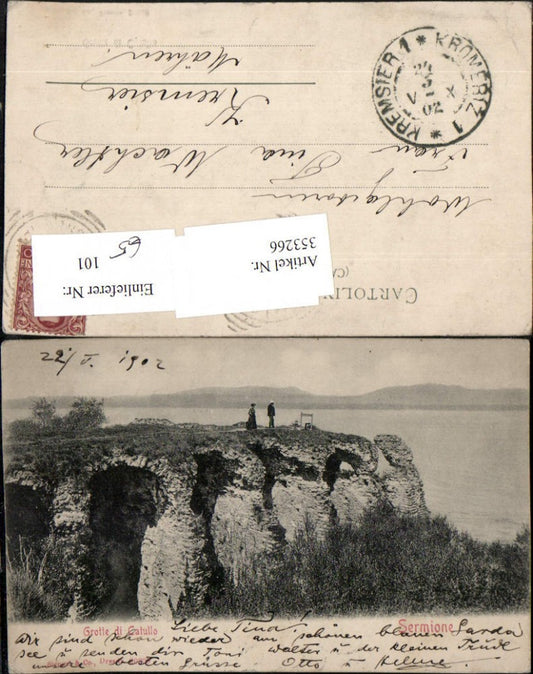 Wohlgeboren
Frau Tina Wachsler
Kremsier
Mähren
KREMSIER 1 * KROMĚŘÍŽ 1 *
24
5
V X
02
CARTOLIN
(CA
Artikel Nr.
353266
Einlieferer Nr:
101 65
22/V. 1902
Grotte di Catullo
Sermione
Liebe Tina!
Wir sind schon wieder am schönen blauen Garda
see u senden dir Toni Walter u der kleinen Trude
unsere besten Grüsse Otto u